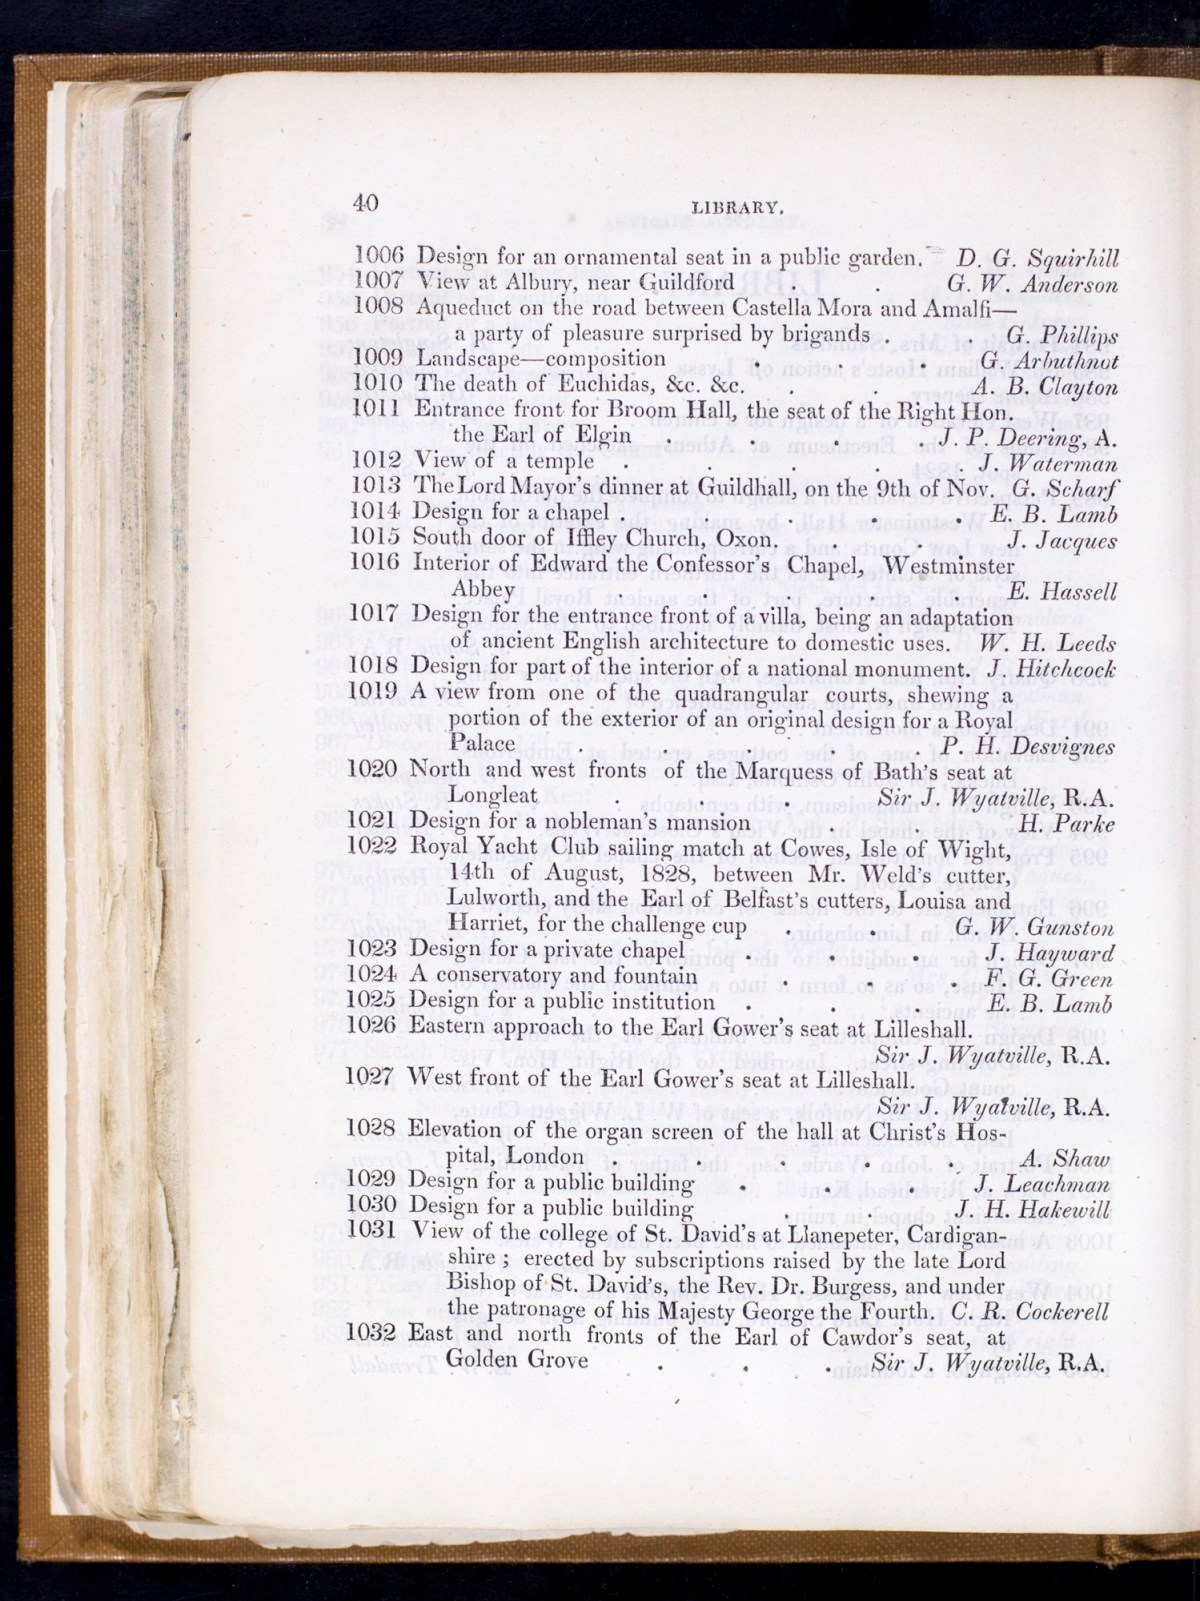 40 LIBRARY.
1006 Design for an ornamental seat in a public garden. D. G. Squirhill
1007 View at Albury, near Guildford . . G. W. Anderson
1008 Aqueduct on the road between Castella Mora and Amalfi—
a party of pleasure surprised by brigands . . G. Phillips
1009 Landscape—composition . . . G. Arbuthnot
1010 The death of Euchidas, &c. &c. . . A. B. Clayton
1011 Entrance front for Broom Hall, the seat of the Right Hon.
the Earl of Elgin . . . . J. P. Deering, A.
1012 View of a temple . . . . . J. Waterman
1013 The Lord Mayor's dinner at Guildhall, on the 9th of Nov. G. Scharf
1014 Design for a chapel . . . . . E. B. Lamb
1015 South door of Iffley Church, Oxon. . . J. Jacques
1016 Interior of Edward the Confessor's Chapel, Westminster
Abbey . . . . . E. Hassell
1017 Design for the entrance front of a villa, being an adaptation
of ancient English architecture to domestic uses. W. H. Leeds
1018 Design for part of the interior of a national monument. J. Hitchcock
1019 A view from one of the quadrangular courts, shewing a
portion of the exterior of an original design for a Royal
Palace . . . . . P. H. Desvignes
1020 North and west fronts of the Marquess of Bath's seat at
Longleat . . . Sir J. Wyatville, R.A.
1021 Design for a nobleman's mansion . . H. Parke
1022 Royal Yacht Club sailing match at Cowes, Isle of Wight,
14th of August, 1828, between Mr. Weld's cutter,
Lulworth, and the Earl of Belfast's cutters, Louisa and
Harriet, for the challenge cup . . G. W. Gunston
1023 Design for a private chapel . . . J. Hayward
1024 A conservatory and fountain . . . F. G. Green
1025 Design for a public institution . . . E. B. Lamb
1026 Eastern approach to the Earl Gower's seat at Lilleshall.
Sir J. Wyatville, R.A.
1027 West front of the Earl Gower's seat at Lilleshall.
Sir J. Wyatville, R.A.
1028 Elevation of the organ screen of the hall at Christ's Hos-
pital, London . . . . . A. Shaw
1029 Design for a public building . . . J. Leachman
1030 Design for a public building . . J. H. Hakewill
1031 View of the college of St. David's at Llanepeter, Cardigan-
shire ; erected by subscriptions raised by the late Lord
Bishop of St. David's, the Rev. Dr. Burgess, and under
the patronage of his Majesty George the Fourth. C. R. Cockerell
1032 East and north fronts of the Earl of Cawdor's seat, at
Golden Grove . . . Sir J. Wyatville, R.A.